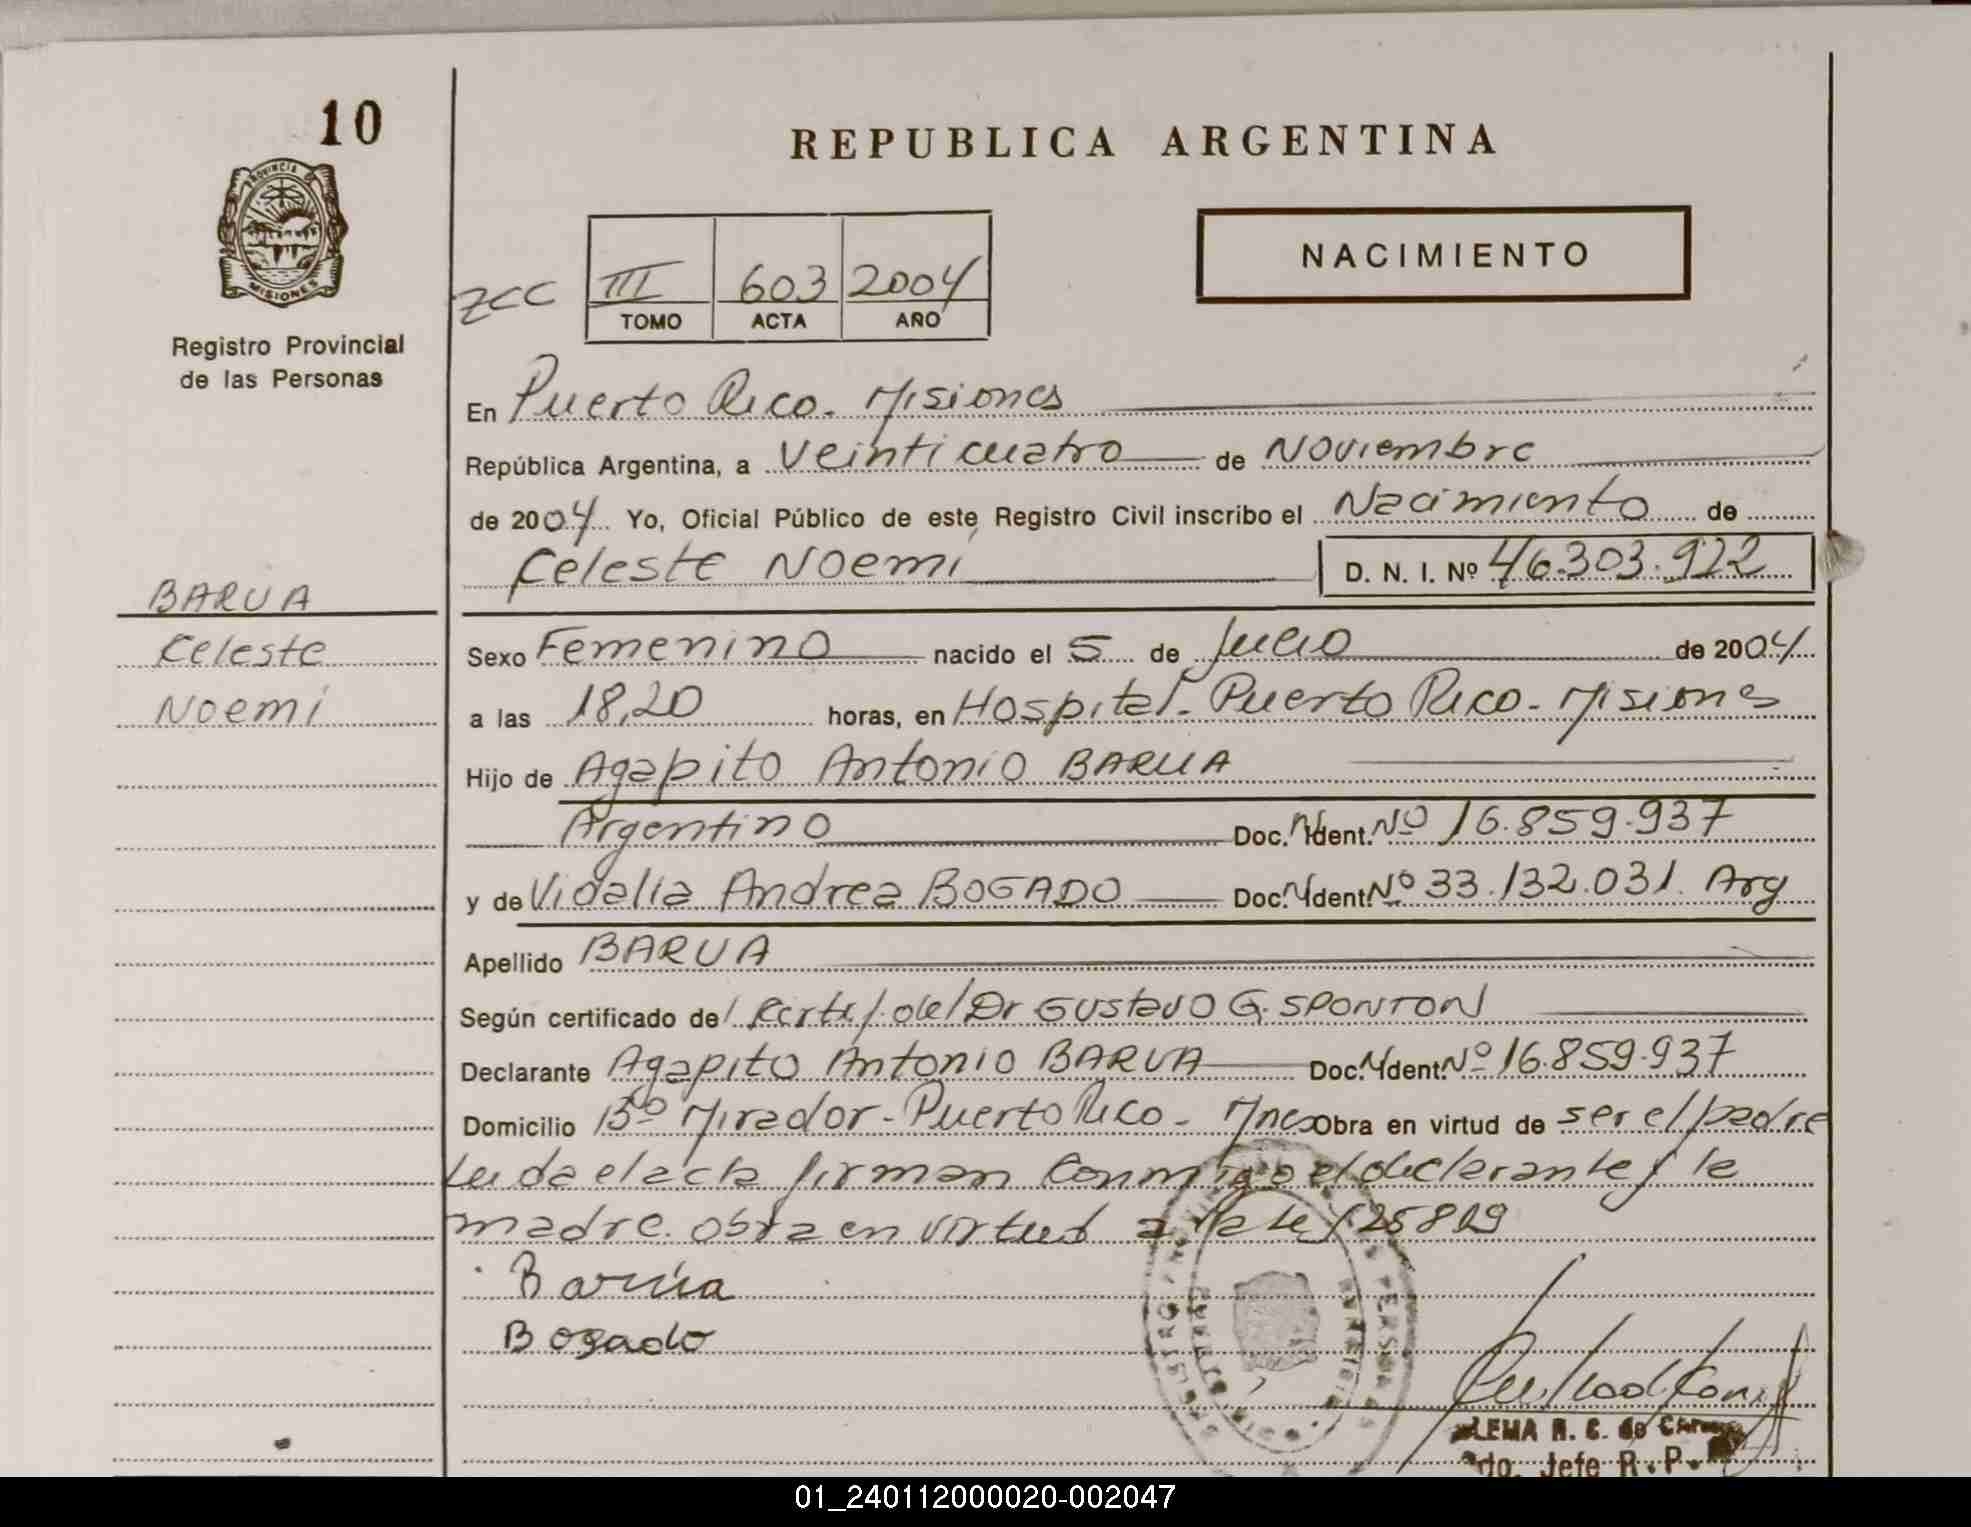 10
REPUBLICA ARGENTINA
PROVINCIA DE
MISIONES
Registro Provincial
de las Personas
NACIMIENTO
ZCC III 603 2004
TOMO ACTA AÑO
En Puerto Rico. Misiones
República Argentina, a Veinticuatro de Noviembre
de 2004 Yo, Oficial Público de este Registro Civil inscribo el Nacimiento de
Celeste Noemí D. N. I. Nº 46.303.922
BARUA
Celeste
Noemí
Sexo Femenino nacido el 5 de Julio de 2004
a las 18,20 horas, en Hospital - Puerto Rico - Misiones
Hijo de Agapito Antonio BARUA
Argentino Doc. N Ident. Nº 16.859.937
y de Vidalia Andrea BOGADO Doc. N Ident Nº 33.132.031. Arg
Apellido BARUA
Según certificado de/ Certif. del Dr Gustavo G. SPONTON
Declarante Agapito Antonio BARUA Doc. N Ident. Nº 16.859.937
Domicilio Bº Mirador - Puerto Rico - Mnes Obra en virtud de ser el padre
Leida el acta firman conmigo el declarante y la
madre. obra en virtud a la Ley 25819
Barúa
Bogado
REGISTRO PROVINCIAL DE LAS PERSONAS
R. C. de
Jefe R. P.
01_240112000020-002047